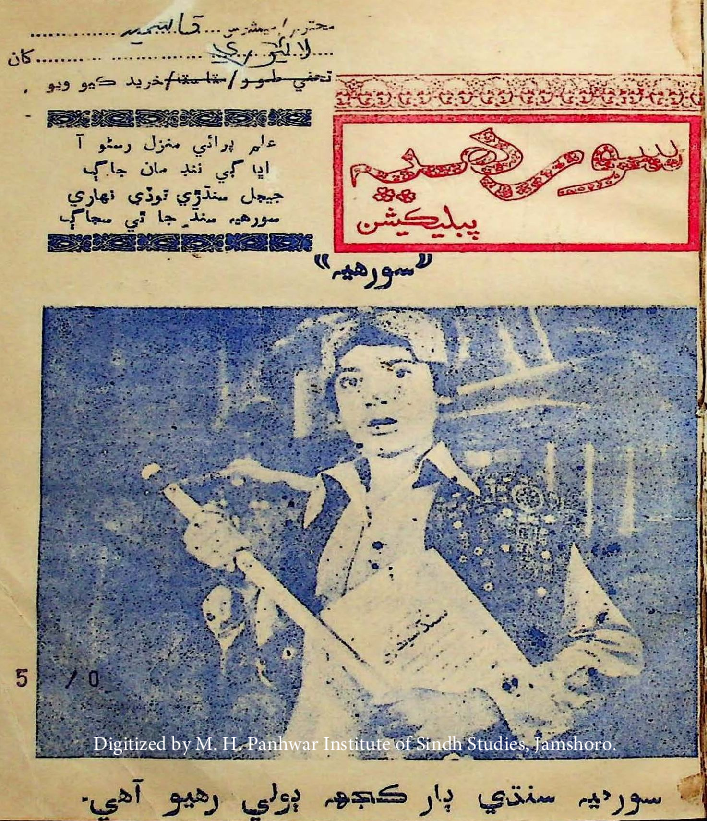 محترم/ميسرس
لائبريري کان
تحفي طور/خريد ڪيو ويو
علم پرائي منزل رسڻو آ
اڀا ڳي ننڊ مان جاڳ
جيجل سنڌڙي توڏي نهاري
سورهيه سنڌ جا ٿي سجاڳ
سورهيه
پبليڪيشن
"سورهيه"
5 / 0
Digitized by M. H. Panhwar Institute of Sindh Studies, Jamshoro.
سورهيه سنڌي ٻار ڪجهه ٻولي رهيو آهي.